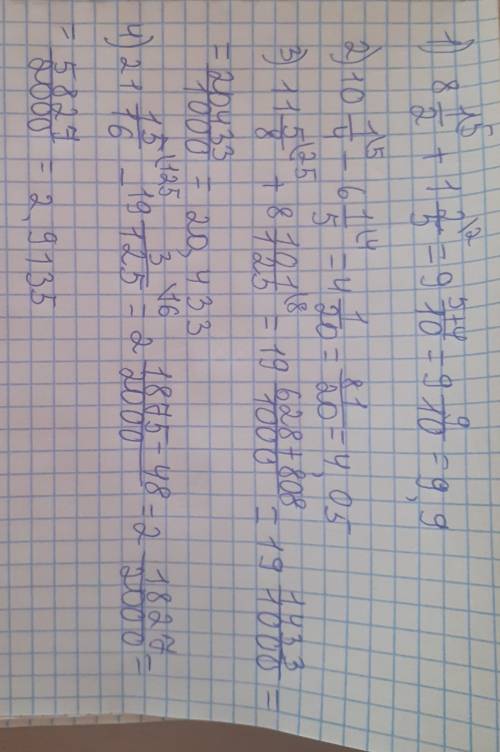 1) 8 1/2 \5 + 1 2/5 \2 = 9 5+4/10 = 9 9/10 = 9,9
2) 10 1/4 \5 - 6 1/5 \4 = 4 1/20 = 81/20 = 4,05
3) 11 5/8 \125 + 8 101/125 \8 = 19 628+808/1000 = 19 1433/1000 =
= 20433/1000 = 20,433
4) 21 15/16 \125 - 19 3/125 \16 = 2 1875-48/2000 = 2 1827/2000 =
= 5827/2000 = 2,9135